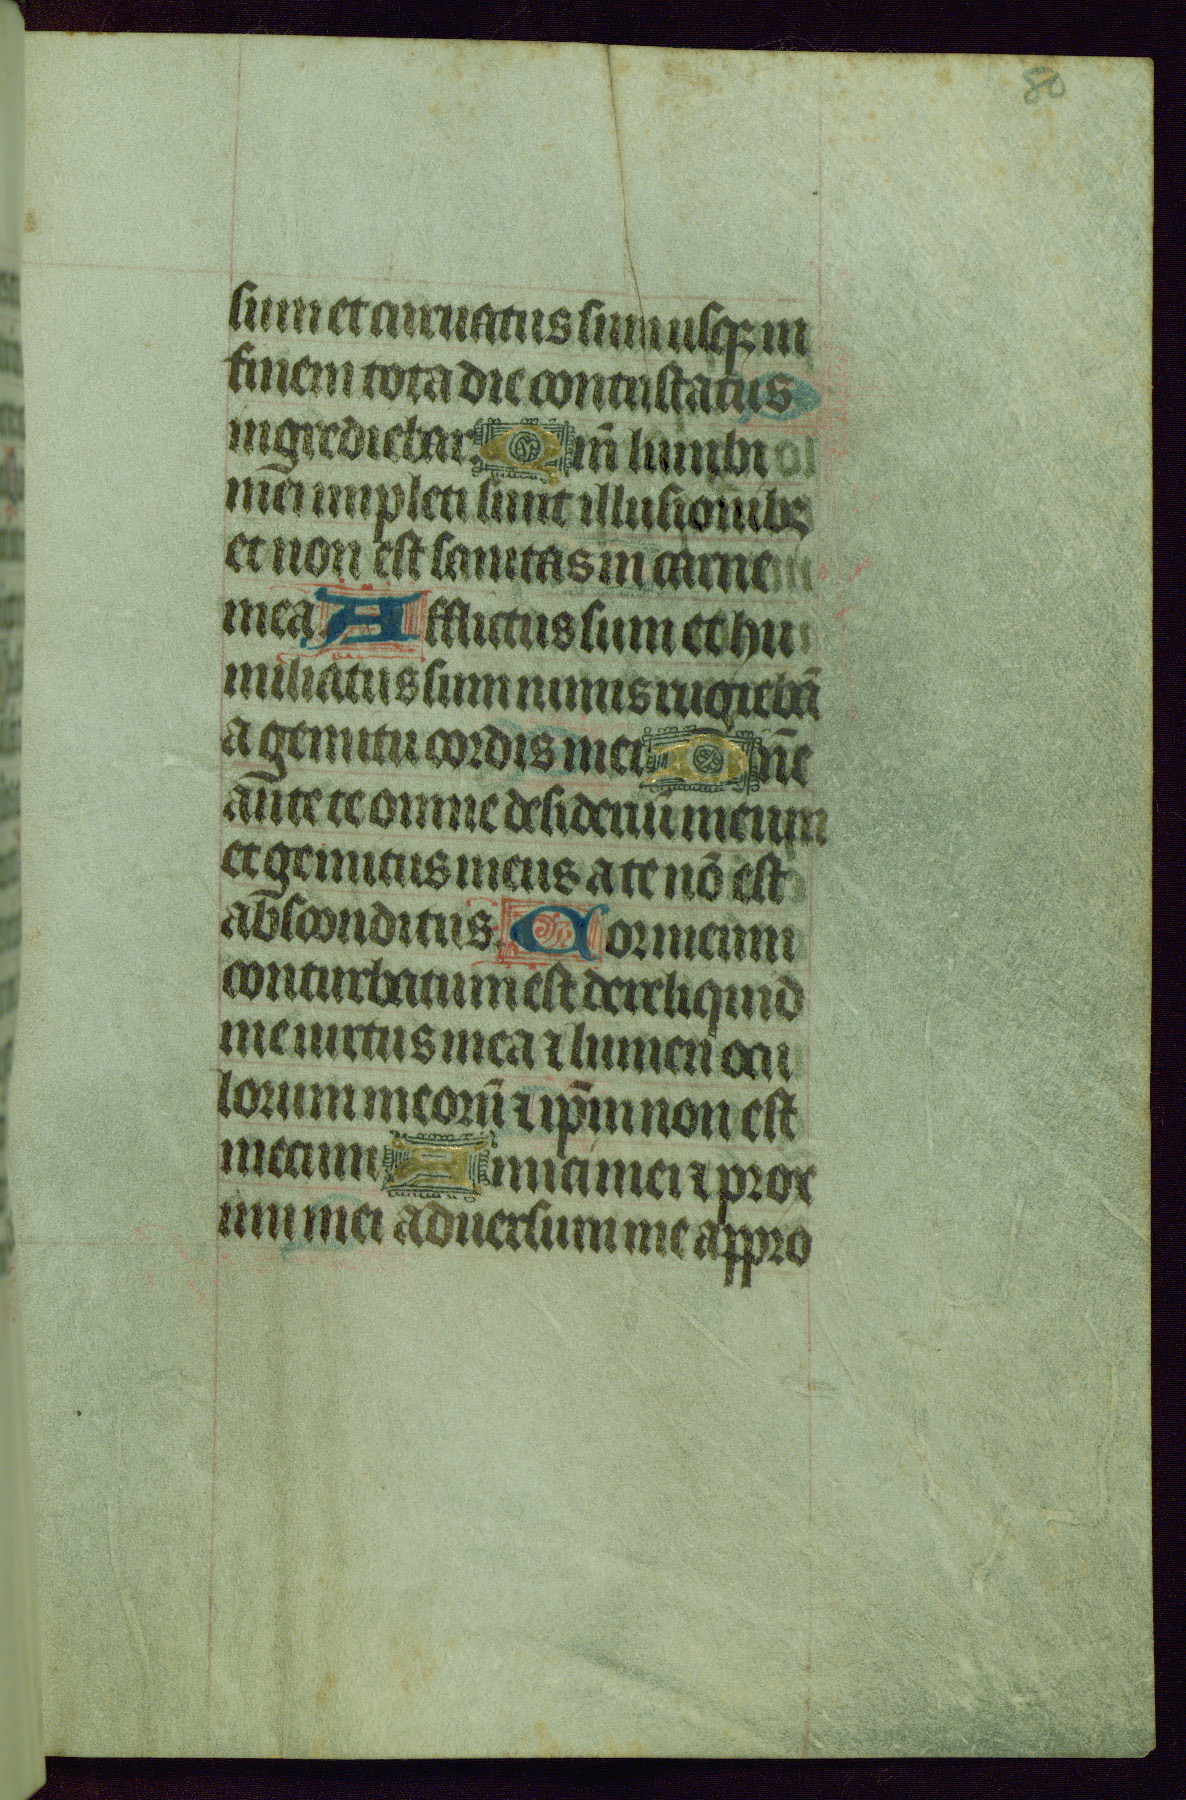 80
sum et curuatus sum usqꝫ in
finem tota die contristatus
ingrediebar. Qm̄ lumbi
mei impleti sunt illusionibꝫ
et non est sanitas in carne
mea. Afflictus sum et hu
miliatus sum nimis rugiebā
a gemitu cordis mei. Dn̄e
an̄te te omne desideriū meum
et gemitus meus a te nō est
absconditus. Cor meum
conturbatum est dereliquid
me uirtus mea ⁊ lumen ocu
lorum meorū ⁊ ip̄m non est
mecum Amici mei ⁊ prox
imi mei aduersum me appro